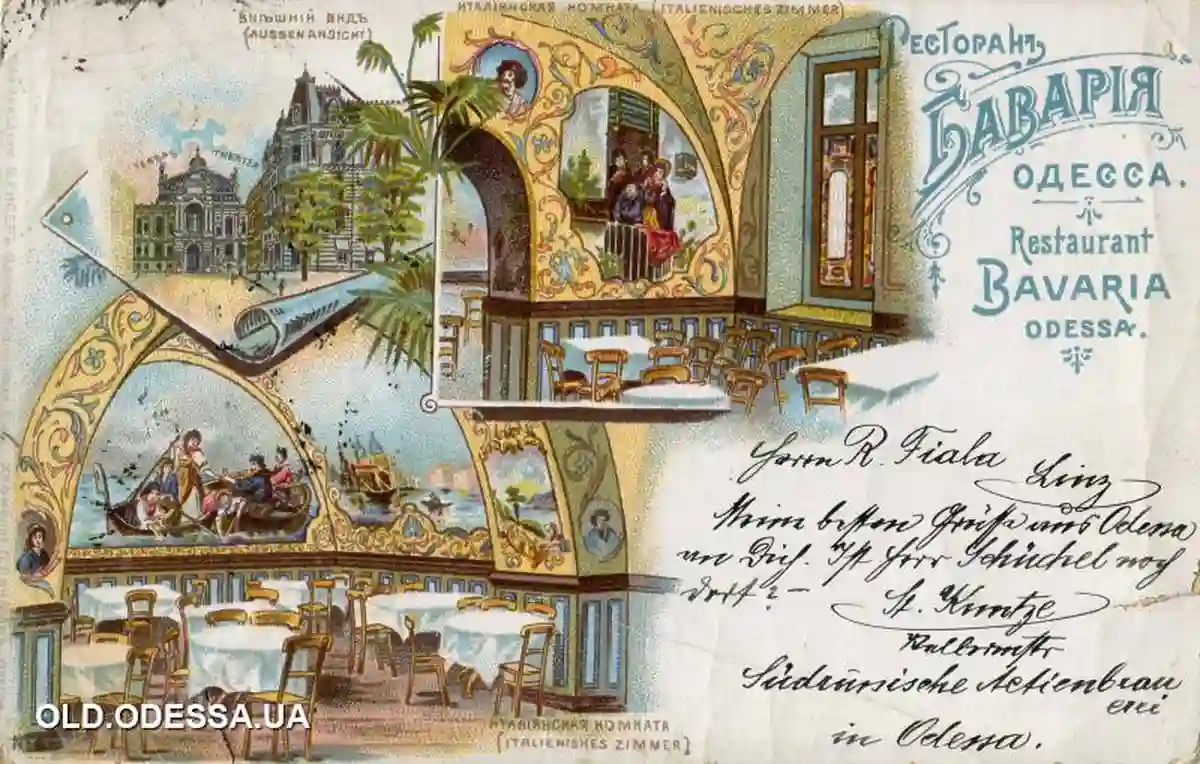 ВНѢШНІЙ ВИДЪ
(AUSSENANSICHT)
ИТАЛІЯНСКАЯ КОМНАТА (ITALIENISCHES ZIMMER)
THEATER
РЕСТОРАНЪ
БАВАРІЯ
ОДЕССА.
Restaurant
BAVARIA
ODESSA.
Herrn R. Fiala
Linz
Meine besten Grüsse aus Odessa
an Dich. Ist Herr Schüchel noch
dort? –
St. Kuntze
Südrussische Actienbrau
erei
in Odessa.
ИТАЛІЯНСКАЯ КОМНАТА
(ITALIENISCHES ZIMMER)
OLD.ODESSA.UA